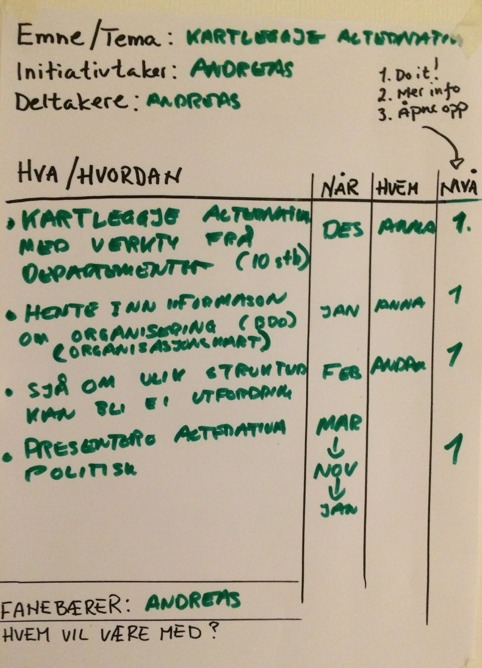 Emne/Tema: KARTLEGGJE ALTERNATIV
Initiativtaker: ANDREAS
Deltakere: ANDREAS
1. Do it!
2. Mer info
3. Åpne opp
HVA/HVORDAN NÅR HVEM NIVÅ
• KARTLEGGJE ALTERNATIV DES ANNA 1.
MED VERKTY FRÅ
DEPARTEMENTET (10 stk)
• HENTE INN INFORMASON JAN ANNA 1
OM ORGANISERING (BDO)
(ORGANISASJONSKART)
• SJÅ OM ULIK STRUKTUR FEB 1
KAN BLI EI UTFORDRING
• PRESENTERE ALTERNATIVA MAR 1
POLITISK ↓
NOV
↓
JAN
FANEBÆRER: ANDREAS
HVEM VIL VÆRE MED?